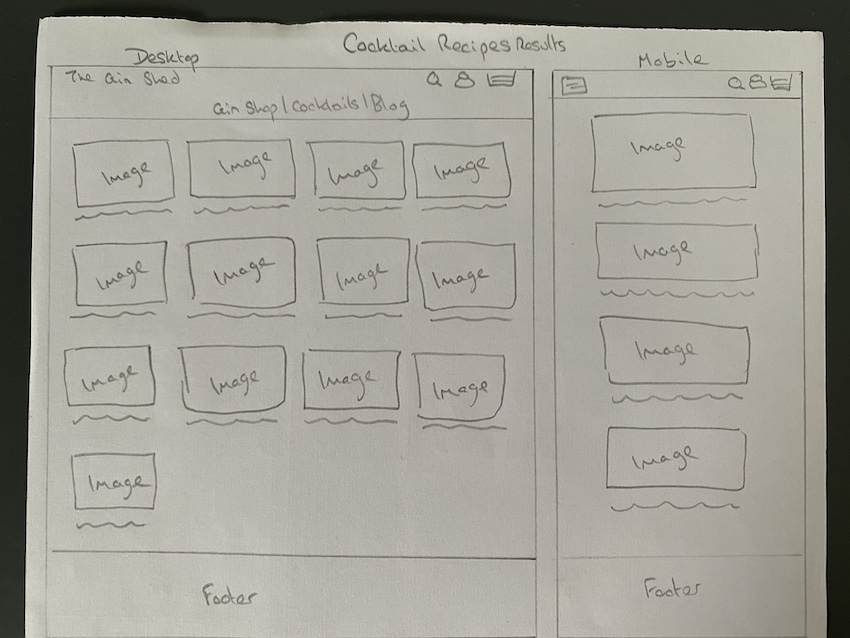 Cocktail Recipes Results
Desktop
The Gin Shed
Gin Shop | Cocktails | Blog
Image Image Image Image
Image Image Image Image
Image Image Image Image
Image
Footer
Mobile
Image
Image
Image
Image
Footer